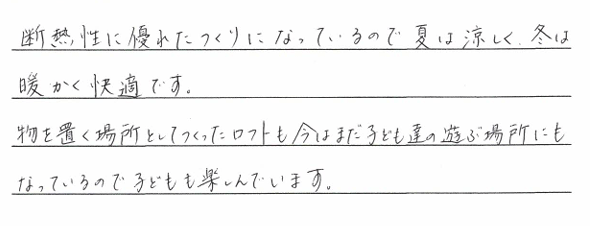 断熱性に優れたつくりになっているので夏は涼しく、冬は
暖かく快適です。
物を置く場所としてつくったロフトも今はまだ子ども達の遊ぶ場所にも
なっているので子どもも楽しんでいます。